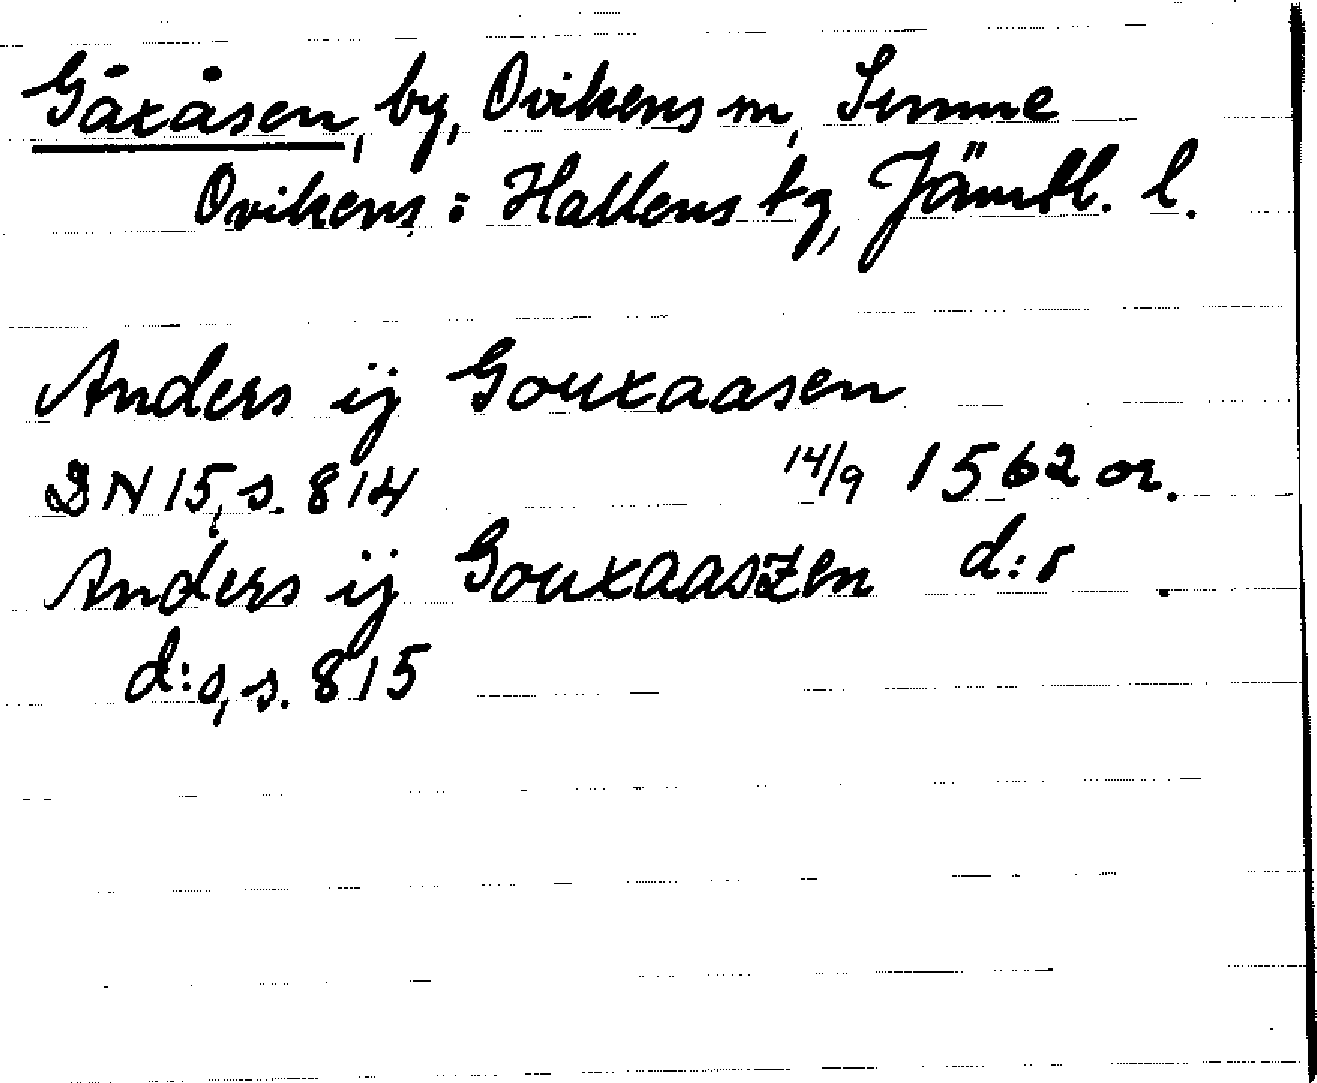 Gåxåsen, by, Ovikens sn, Sunne
Ovikens: Hallens tg, Jämtl. l.
Anders ij Gouxaasen
DN 15, s. 814 14/9 1562 or.
Anders ij Gouxaaszen d:o
d:o, s. 815